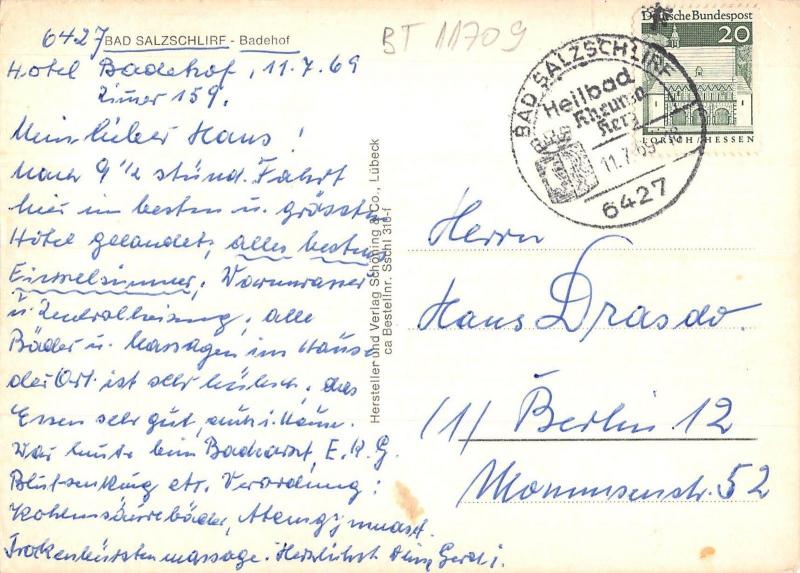 6427 BAD SALZSCHLIRF - Badehof
Hotel Badehof, 11.7.69
Zimer 159.
Mein lieber Hans!
Nach 9 1/2 stünd. Fahrt
hier im besten u. grössten
Hotel gelandet, alles bestens
Einzelzimmer, Warmwasser
u. Zentralheizung, alle
Bäder u. Massagen im Hause
der Ort ist sehr hübsch, das
Essen sehr gut,
War heute beim Badearzt, E.K.G.
Blutsenkung etc. Verordnung:
Kohlensäurebäder, Atemgymnast.
Trockenbürstenmassage. Herzlichst Deine Gerdi.
Hersteller und Verlag Schöning & Co., Lübeck
ca Bestellnr. Sschl 316-f
BT 11709
BAD SALZSCHLIRF
Heilbad
Rheuma
Herz
11.7.69
6427
Deutsche Bundespost
20
LORSCH/HESSEN
Herrn
Hans Drasdo.
(1) Berlin 12
Mommsenstr. 52